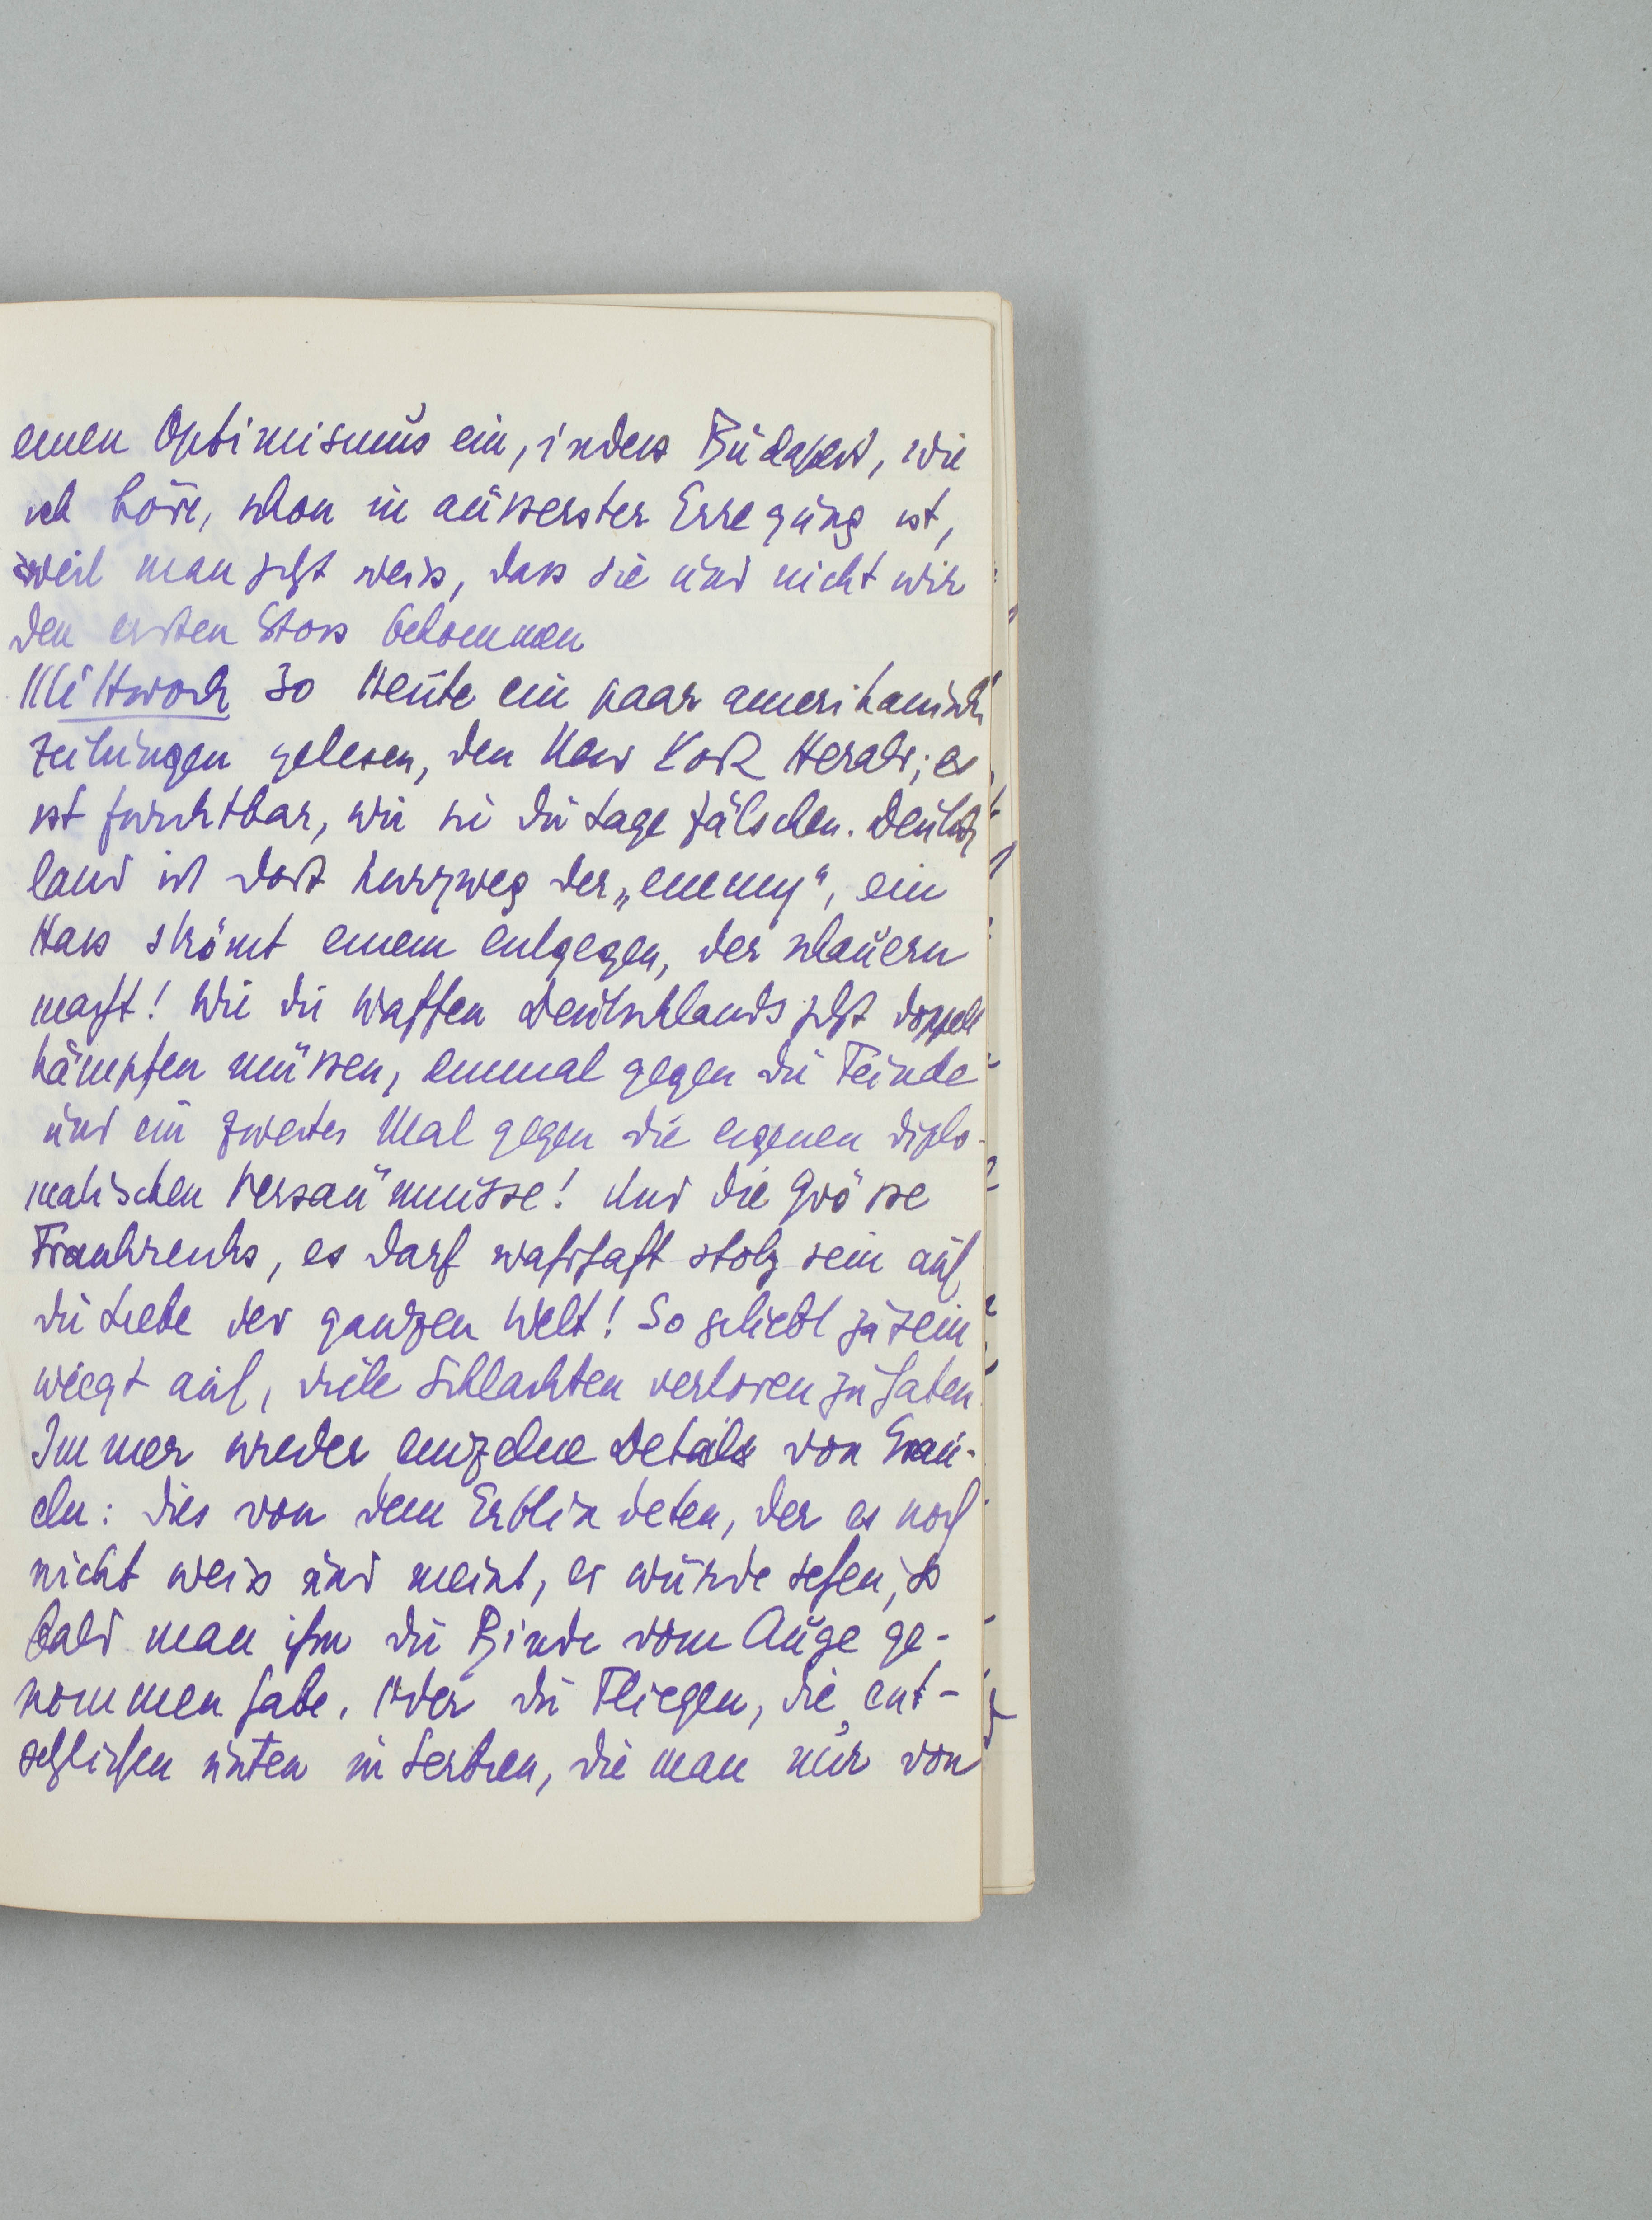 einen Optimismus ein, indess Budapest, wie
ich höre, schon in äusserster Erregung ist,
weil man jetzt weiss, dass sie und nicht wir
den ersten Stoss bekommen
Mittwoch 30 Heute ein paar amerikanische
Zeitungen gelesen, den New York Herald; es
ist furchtbar, wie sie die Lage fälschen. Deutsch
land ist dort kurzweg der „enemy", ein
Hass strömt einem entgegen, der schauern
macht! Wie die Waffen Deutschlands jetzt doppelt
kämpfen müssen, einmal gegen die Feinde
und ein zweites Mal gegen die eigenen diplo-
matischen Versäumnisse! Und die Grösse
Frankreichs, es darf wahrhaft stolz sein auf
die Liebe der ganzen Welt! So geliebt zu sein
wiegt auf, viele Schlachten verloren zu haben.
Immer wieder einzelne Details von Gräu-
eln: dies von dem Erblindeten, der es noch
nicht weiss und meint, er würde sehen, so
bald man ihm die Binde vom Auge ge-
nommen habe. Oder die Fliegen, die ent-
setzlichen unten in Serbien, die man nur von